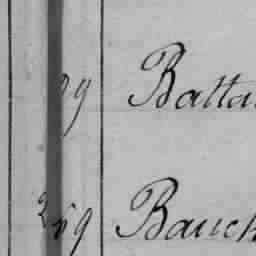 99 Batta
269 Bauch